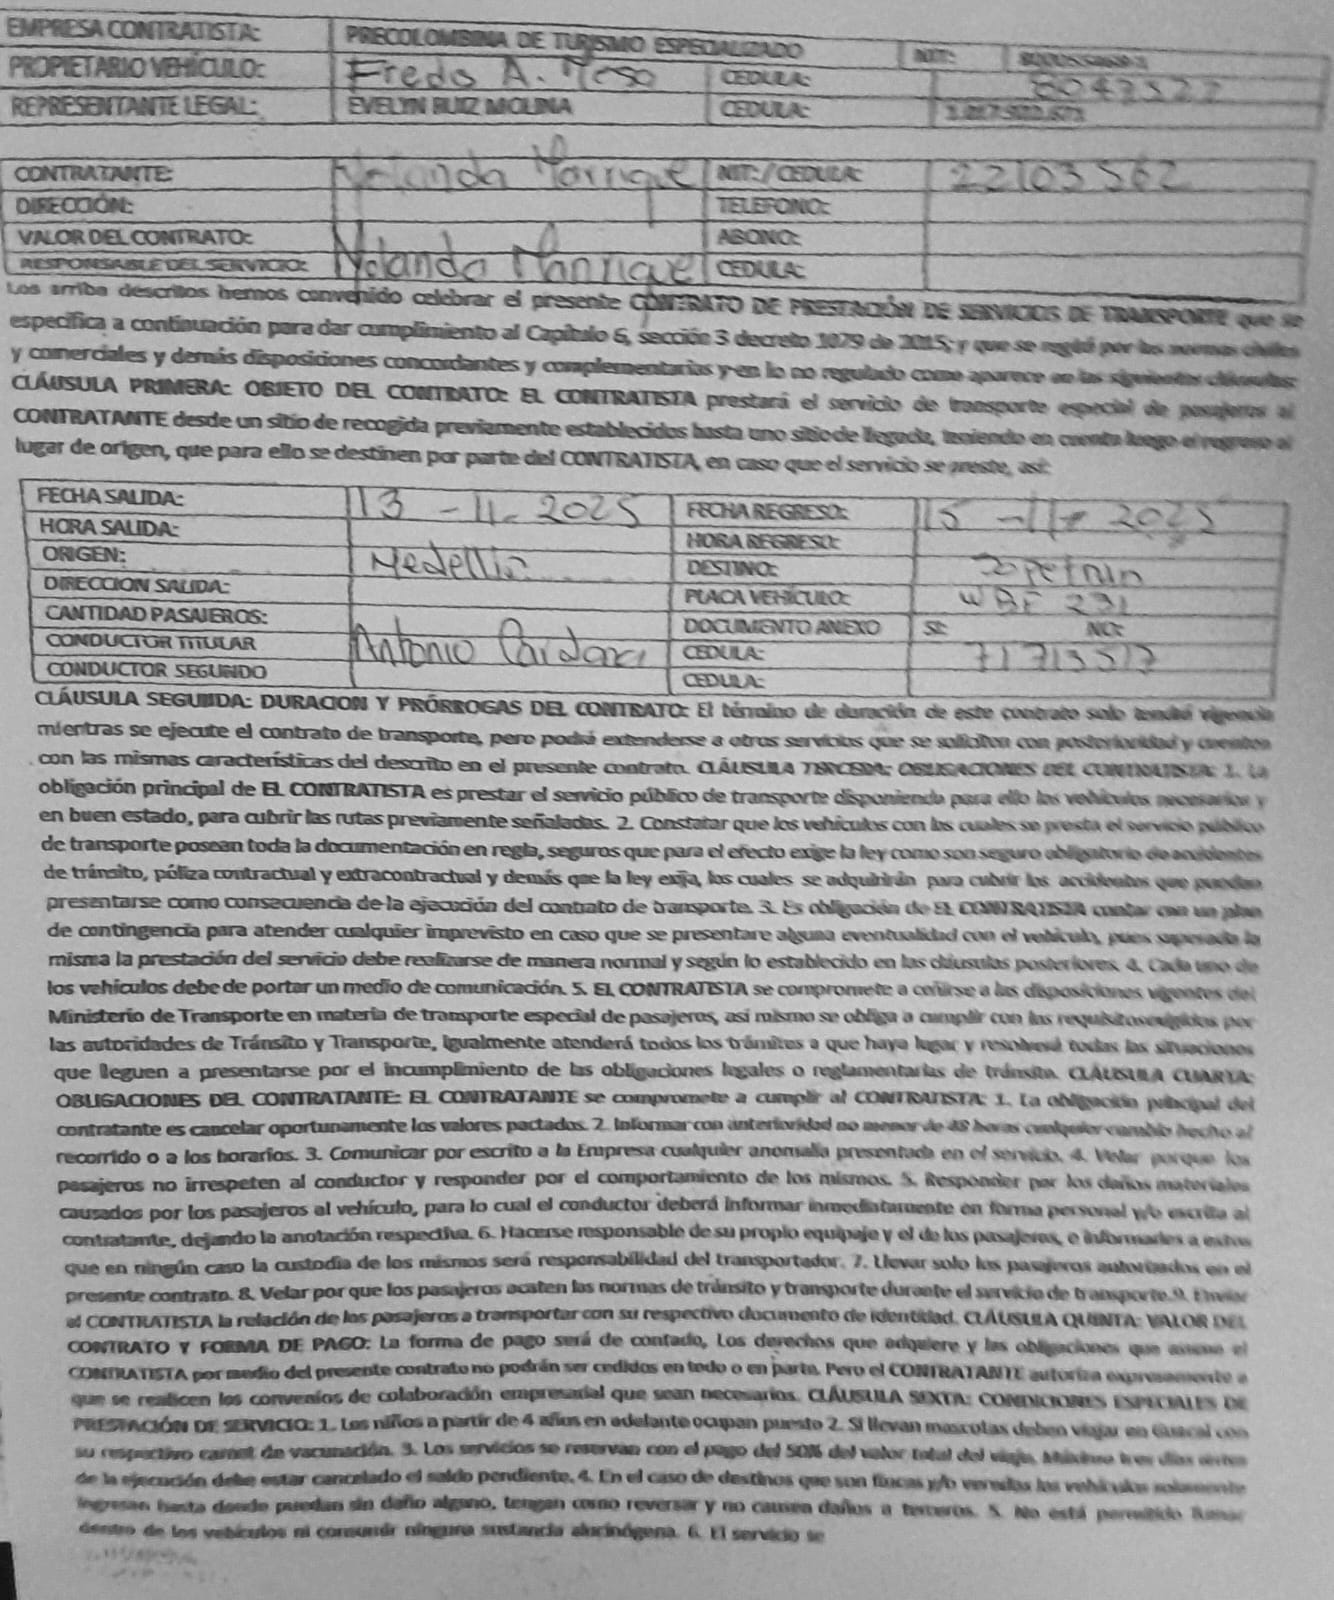 EMPRESA CONTRATISTA: PRECOLOMBINA DE TURISMO ESPECIALIZADO NIT:
PROPIETARIO VEHÍCULO: Fredo A. CEDULA: 8043527
REPRESENTANTE LEGAL: EVELYN RUIZ MOLINA CEDULA:
CONTRATANTE: Yolanda Manrique NIT: / CEDULA: 22103562
DIRECCIÓN: TELEFONO:
VALOR DEL CONTRATO: ABONO:
RESPONSABLE DEL SERVICIO: Yolanda Manrique CEDULA:
Los arriba descritos hemos convenido celebrar el presente CONTRATO DE PRESTACIÓN DE SERVICIOS DE TRANSPORTE que se
especifica a continuación para dar cumplimiento al Capítulo 6, sección 3 decreto 1079 de 2015; y que se regirá por las normas civiles
y comerciales y demás disposiciones concordantes y complementarias y en lo no regulado como aparece en las siguientes cláusulas:
CLÁUSULA PRIMERA: OBJETO DEL CONTRATO: EL CONTRATISTA prestará el servicio de transporte especial de pasajeros al
CONTRATANTE desde un sitio de recogida previamente establecidos hasta uno sitio de llegada, teniendo en cuenta luego el regreso al
lugar de origen, que para ello se destinen por parte del CONTRATISTA, en caso que el servicio se preste, así:
FECHA SALIDA: 13 - 11 - 2025 FECHA REGRESO: 15 - 11 - 2025
HORA SALIDA: HORA REGRESO:
ORIGEN: Medellin DESTINO: Sopetran
DIRECCION SALIDA: PLACA VEHÍCULO: WBF 291
CANTIDAD PASAJEROS: DOCUMENTO ANEXO SI: NO:
CONDUCTOR TITULAR Antonio Cardona CEDULA: 71713517
CONDUCTOR SEGUNDO CEDULA:
CLÁUSULA SEGUNDA: DURACION Y PRÓRROGAS DEL CONTRATO: El término de duración de este contrato solo tendrá vigencia
mientras se ejecute el contrato de transporte, pero podrá extenderse a otros servicios que se soliciten con posterioridad y cuenten
con las mismas características del descrito en el presente contrato. CLÁUSULA TERCERA: OBLIGACIONES DEL CONTRATISTA: 1. La
obligación principal de EL CONTRATISTA es prestar el servicio público de transporte disponiendo para ello los vehículos necesarios y
en buen estado, para cubrir las rutas previamente señaladas. 2. Constatar que los vehículos con los cuales se presta el servicio público
de transporte posean toda la documentación en regla, seguros que para el efecto exige la ley como son seguro obligatorio de accidentes
de tránsito, póliza contractual y extracontractual y demás que la ley exija, los cuales se adquirirán para cubrir los accidentes que puedan
presentarse como consecuencia de la ejecución del contrato de transporte. 3. Es obligación de EL CONTRATISTA contar con un plan
de contingencia para atender cualquier imprevisto en caso que se presentare alguna eventualidad con el vehículo, pues superada la
misma la prestación del servicio debe realizarse de manera normal y según lo establecido en las cláusulas posteriores. 4. Cada uno de
los vehículos debe de portar un medio de comunicación. 5. EL CONTRATISTA se compromete a ceñirse a las disposiciones vigentes del
Ministerio de Transporte en materia de transporte especial de pasajeros, así mismo se obliga a cumplir con los requisitos exigidos por
las autoridades de Tránsito y Transporte, igualmente atenderá todos los trámites a que haya lugar y resolverá todas las situaciones
que lleguen a presentarse por el incumplimiento de las obligaciones legales o reglamentarias de tránsito. CLÁUSULA CUARTA:
OBLIGACIONES DEL CONTRATANTE: EL CONTRATANTE se compromete a cumplir al CONTRATISTA: 1. La obligación principal del
contratante es cancelar oportunamente los valores pactados. 2. Informar con anterioridad no menor de 48 horas cualquier cambio hecho al
recorrido o a los horarios. 3. Comunicar por escrito a la Empresa cualquier anomalía presentada en el servicio. 4. Velar porque los
pasajeros no irrespeten al conductor y responder por el comportamiento de los mismos. 5. Responder por los daños materiales
causados por los pasajeros al vehículo, para lo cual el conductor deberá informar inmediatamente en forma personal y/o escrita al
contratante, dejando la anotación respectiva. 6. Hacerse responsable de su propio equipaje y el de los pasajeros, e informarles a estos
que en ningún caso la custodia de los mismos será responsabilidad del transportador. 7. Llevar solo los pasajeros autorizados en el
presente contrato. 8. Velar por que los pasajeros acaten las normas de tránsito y transporte durante el servicio de transporte. 9. Enviar
al CONTRATISTA la relación de los pasajeros a transportar con su respectivo documento de identidad. CLÁUSULA QUINTA: VALOR DEL
CONTRATO Y FORMA DE PAGO: La forma de pago será de contado, Los derechos que adquiere y las obligaciones que asume el
CONTRATISTA por medio del presente contrato no podrán ser cedidos en todo o en parte. Pero el CONTRATANTE autoriza expresamente a
que se realicen los convenios de colaboración empresarial que sean necesarios. CLÁUSULA SEXTA: CONDICIONES ESPECIALES DE
PRESTACIÓN DE SERVICIO: 1. Los niños a partir de 4 años en adelante ocupan puesto 2. Si llevan mascotas deben viajar en Guacal con
su respectivo carnet de vacunación. 3. Los servicios se reservan con el pago del 50% del valor total del viaje. Máximo tres días antes
de la ejecución debe estar cancelado el saldo pendiente. 4. En el caso de destinos que son fincas y/o veredas los vehículos solamente
ingresan hasta donde puedan sin daño alguno, tengan como reversar y no causen daños a terceros. 5. No está permitido fumar
dentro de los vehículos ni consumir ninguna sustancia alucinógena. 6. El servicio se